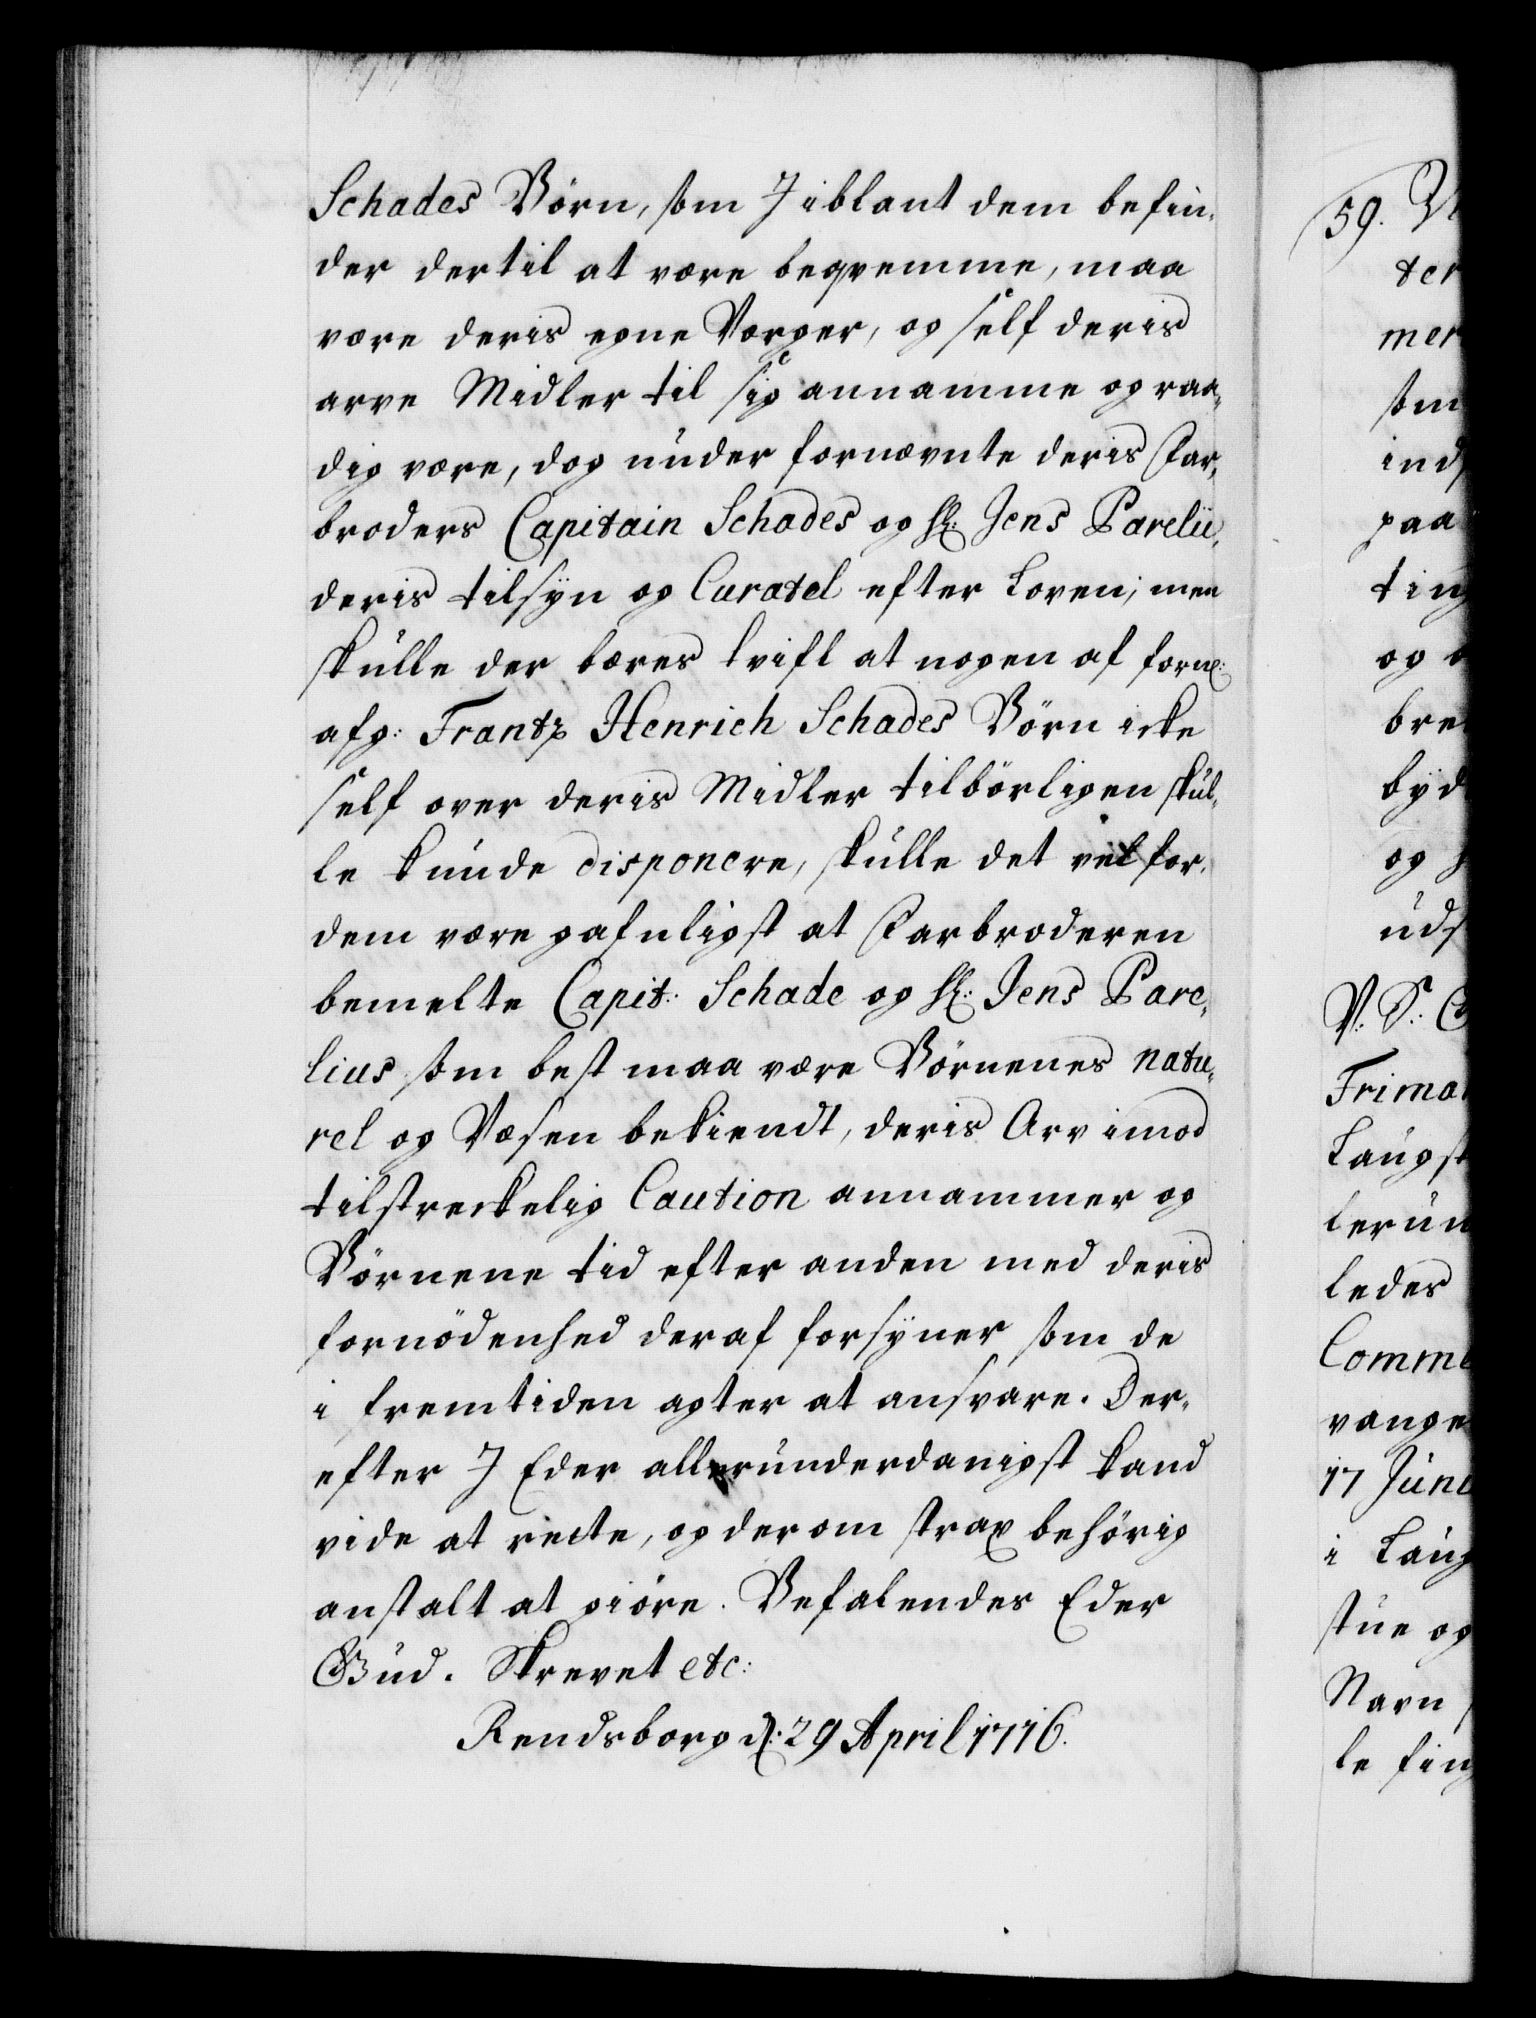 Schades Børn, som I iblant dem befin-
der dertil at være beqvemme, maa
være deris egne Værger, og self deris
arve Midler til sig annamme og raa-
dig være, dog under fornævnte deris Far-
broders Capitain Schades og Hr: Jens Parelii,
deris tilsyn og Curatel efter Loven; men
skulle der bæres tvifl at nogen af forne:
afg: Frantz Henrich Schades Børn icke
self over deris Midler tilbörligen skul-
le kunde disponere, skulle det vel for-
dem være gafnligst at Farbroderen
bemelte Capit: Schade og Hr: Jens Pare-
lius som best maa være Börnenes natu-
rel og Væsen bekiendt, deris Arv imod
tilstreckelig Caution annammer og
Börnene tid efter anden med deris
fornödenhed deraf forsÿner som de
i fremtiden agter at ansvare. Der-
efter I Eder allerunderdanigst kand
vide at rette, og derom strax behörig
anstalt at giöre. Befalendes Eder
Gud. Skrevet etc:
Rendsborg d: 29 April 1716.
59.
ter
mer
som
ind
paa
ting
og
bre
byd
og
uds
V: S:
Frima
Laugst
lerun
ledes
Comme
vange
17 June
i Laug
stue og
Navn
le fing